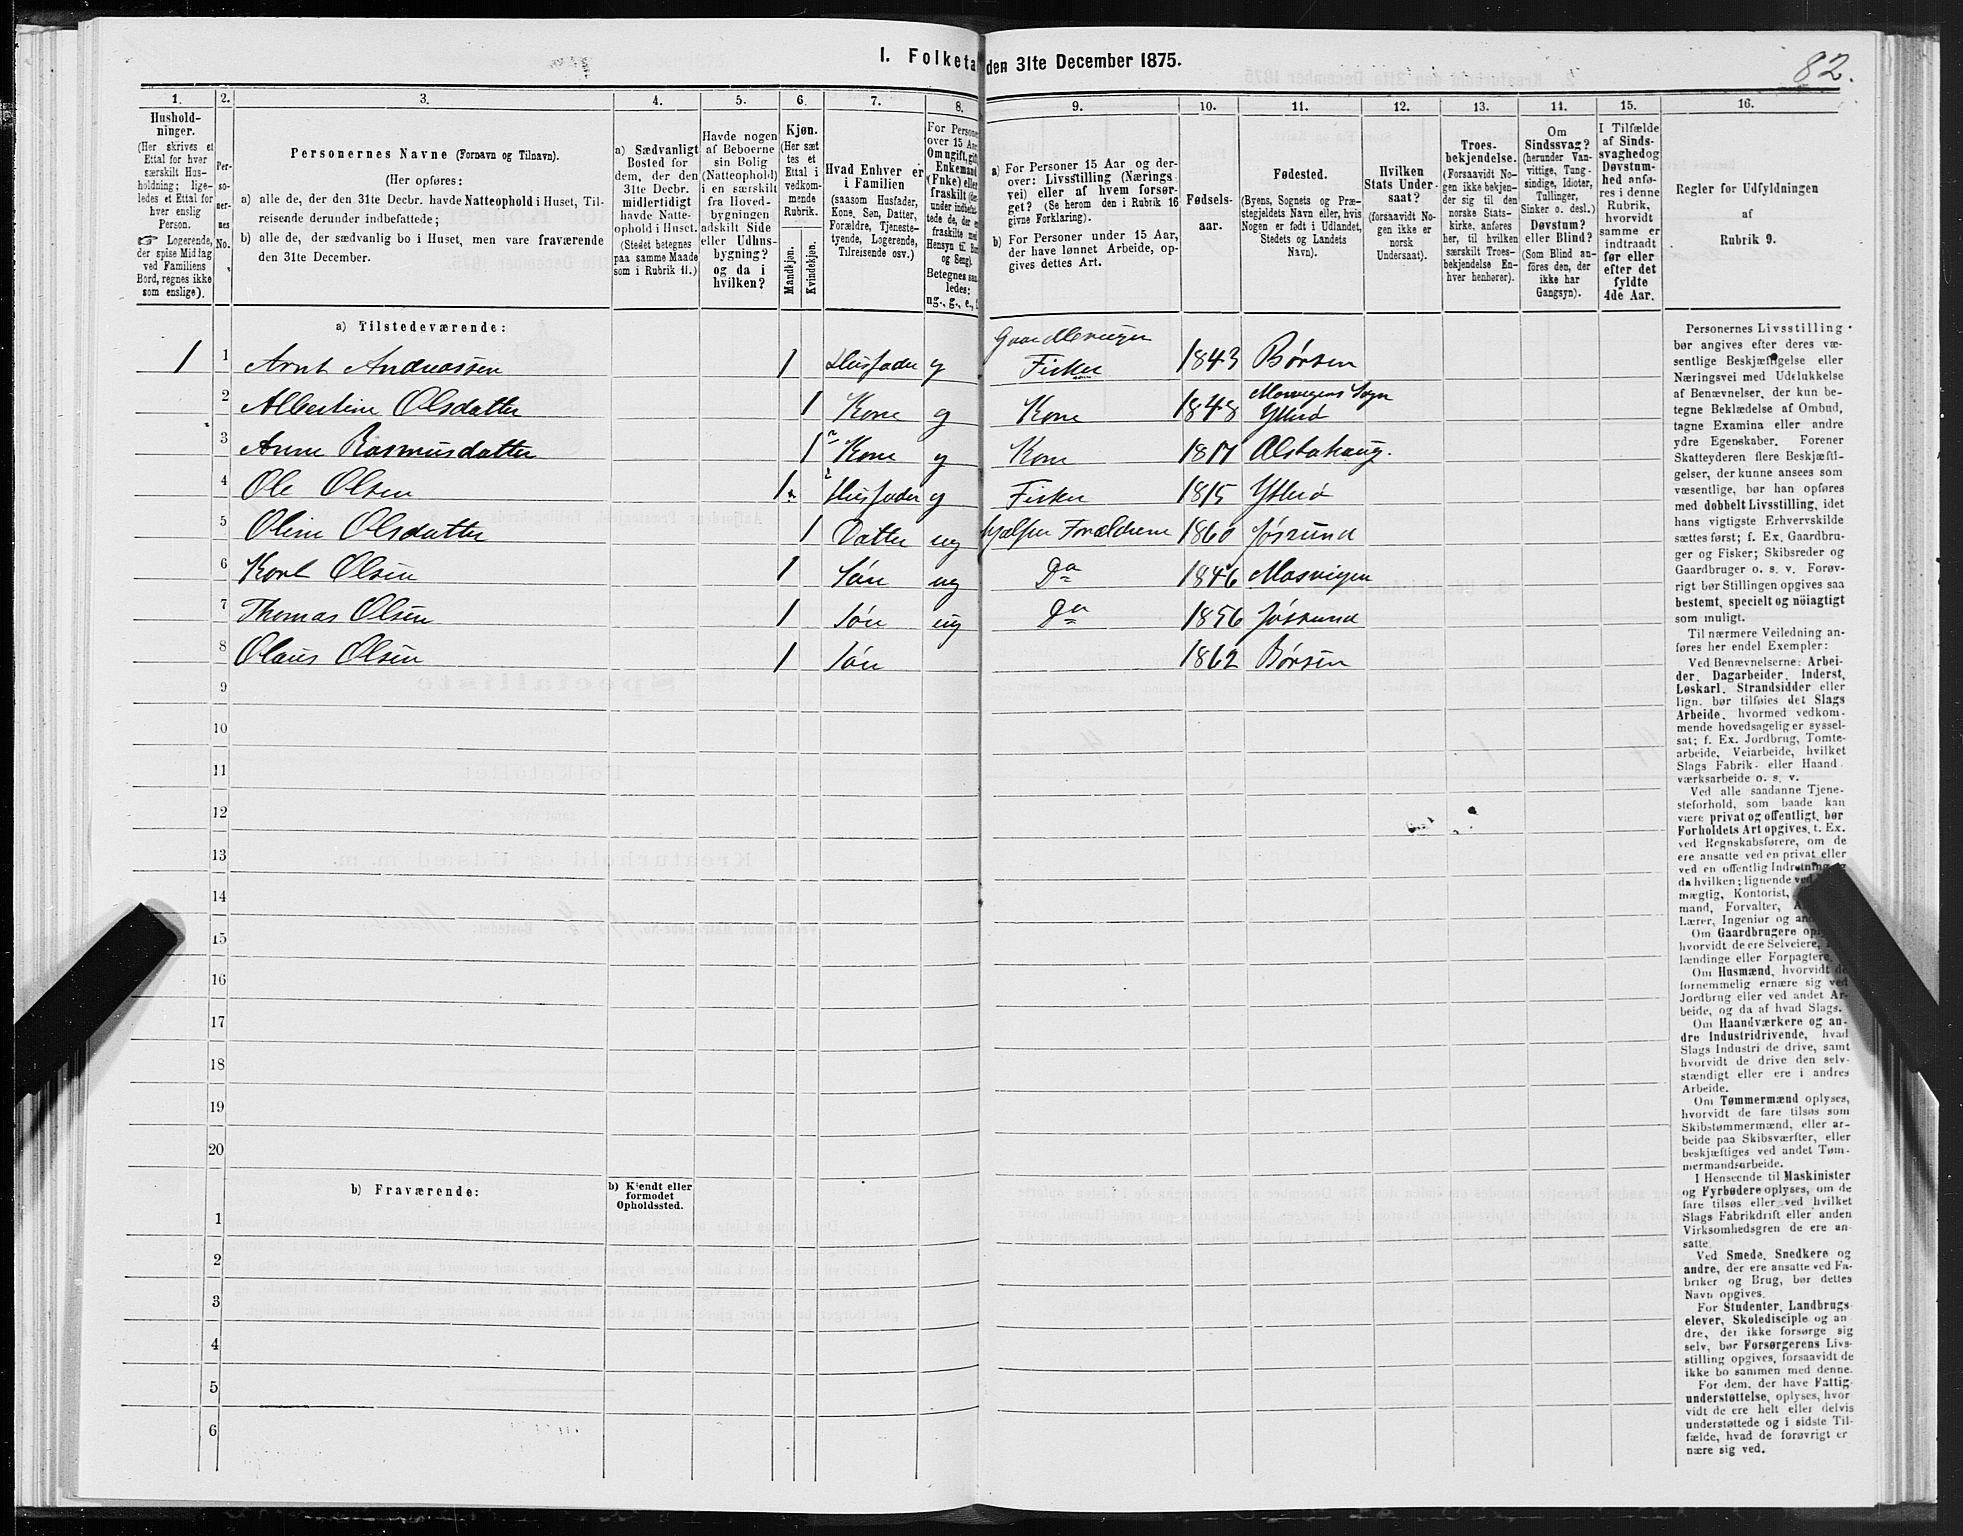 I. Folketa
den 31te December 1875.
82.
1. 2. 3. 4. 5. 6. 7. 8. 9. 10. 11. 12. 13. 14. 15. 16.
Hushold-
ninger.
(Her skrives et
Ettal for hver
særskilt Hus-
holdning; lige-
ledes et Ettal for
hver enslig
Person.
☞ Logerende,
der spise Middag
ved Familiens
Bord, regnes ikke
som enslige).
Per-
so-
ner-
nes
No.
Personernes Navne (Fornavn og Tilnavn).
(Her opføres:
a) alle de, der den 31te Decbr. havde Natteophold i Huset, Til-
reisende derunder indbefattede;
b) alle de, der sædvanlig bo i Huset, men vare fraværende
den 31te December.
a) Sædvanligt
Bosted for
dem, der den
31te Decbr.
midlertidigt
havde Natte-
ophold i Huset.
(Stedet betegnes
paa samme Maade
som i Rubrik 11.)
Havde nogen
af Beboerne
sin Bolig
(Natteophold)
i en særskilt
fra Hoved-
bygningen
adskilt Side
eller Udhus-
bygning?
og da i
hvilken?
Kjøn.
(Her sæt
tes et
Ettal i
vedkom-
mende
Rubrik.
Mandkjøn.
Kvindekjøn.
Hvad Enhver er
i Familien
(saasom Husfader,
Kone, Søn, Datter,
Forældre, Tjeneste-
tyende, Logerende,
Tilreisende osv.)
For Persone
over 15 Aar
Om ugift, gift
Enkemand
(Enke) eller
fraskilt (der-
under indbefat-
tede de, der er
fraskilte med
Hensyn til Bor
og Seng).
Betegnes saa
ledes:
ug., g., e., f
a) For Personer 15 Aar og der-
over: Livsstilling (Nærings
vei) eller af hvem forsør-
get? (Se herom den i Rubrik 16
givne Forklaring).
b) For Personer under 15 Aar,
der have lønnet Arbeide, op-
gives dettes Art.
Fødsels-
aar.
Fødested.
(Byens, Sognets og Præ-
stegjeldets Navn eller, hvis
Nogen er født i Udlandet,
Stedets og Landets
Navn).
Hvilken
Stats Under-
saat?
(forsaavidt No-
gen ikke er
norsk
Undersaat).
Troes-
bekjendelse.
(Forsaavidt No-
gen ikke bekjen-
der sig til den
norske Stats-
kirke, anføres
her, til hvilken
særskilt Troes-
bekjendelse En-
hver henhører).
Om
Sindssvag?
(herunder Van-
vittige, Tung-
sindige, Idioter,
Tullinger,
Sinker o. desl.)
Døvstum?
eller Blind?
(Som Blind an-
føres den, der
ikke har
Gangsyn).
I Tilfælde
af Sinds-
svaghed og
Døvstum-
hed anfø-
res i denne
Rubrik,
hvorvidt
samme er
indtraadt
før eller
efter det
fyldte
4de Aar.
Regler for Udfyldningen
af
Rubrik 9.
a) Tilstedeværende:
1 1 Arnt Andreassen 1 Husfader g Fisker 1843 Børsen
2 Albertine Olsdatter 1 Kone g Kone 1848 Mosvigens Sogn Ytterø
3 Anne Rasmusdatter 1 Kone g Kone 1817 Alstahaug.
4 Ole Olsen 1 Husfader g Fisker 1815 Ytterø
5 Oline Olsdatter 1 Datter ug hjælper Forældrene 1860 Jøsund
6 Karl Olsen 1 Søn ug Do 1846 Mosvigen
7 Thomas Olsen 1 Søn ug Do 1856 Jøssund
8 Olaus Olsen 1 Søn 1862 Børsen
9
10
11
12
13
14
15
16
17
18
19
20
b) Fraværende:
b) Kjendt eller
formodet
Opholdssted.
1
2
3
4
5
6
Personernes Livsstilling
bør angives efter deres væ-
sentlige Beskjæftigelse eller
Næringsvei med Udelukkelse
af Benævnelser, der kun be-
tegne Beklædelse af Ombud,
tagne Examina eller andre
ydre Egenskaber. Forener
Skatteyderen flere Beskjæfti-
gelser, der kunne ansees som
væsentlige, bør han opføres
med dobbelt Livsstilling, idet
hans vigtigste Erhvervskilde
sættes først; f. Ex. Gaardbru-
ger og Fisker; Skibsreder og
Gaardbruger o. s. v. Forøv-
rigt bør Stillingen opgives saa
bestemt, specielt og nöiagtigt
som muligt.
Til nærmere Veiledning an-
føres her endel Exempler:
Ved Benævnelserne: Arbei-
der, Dagarbeider, Inderst,
Løskarl, Strandsidder eller
lign. bør tilføies det Slags
Arbeide, hvormed vedkom-
mende hovedsagelig er syssel-
sat; f. Ex. Jordbrug, Tomte-
arbeide, Veiarbeide, hvilket
Slags Fabrik- eller Haand
værksarbeide o. s. v.
Ved alle saadanne Tjene-
steforhold, som baade kan
være privat og offentligt, bør
Forholdets Art opgives, t. Ex.
ved Regnskabsførere, om de
ere ansatte ved en privat eller
ved en offentlig Indretning
da hvilken; lignende ved
mægtig, Kontorist,
mand, Forvalter,
Lærer, Ingeniør og
Om Gaardbrugere
hvorvidt de ere Selveiere,
lændinge eller Forpagtere.
Om Husmænd, hvorvidt de
fornemmelig ernære sig ved
Jordbrug eller ved andet Ar-
beide, og da af hvad Slags.
Om Haandværkere og an-
dre Industridrivende, hvad
Slags Industri de drive, samt
hvorvidt de drive den selv-
stændigt eller ere i andres
Arbeide.
Om Tømmermænd oplyses,
hvorvidt de fare tilsøs som
Skibstømmermænd, eller ar-
beide paa Skibsværfter, eller
beskjæftiges ved andet Tøm-
mermandsarbeide.
I Henseende til Maskinister
og Fyrbødere oplyses, om de
fare tilsøs eller ved hvilket
Slags Fabrikdrift eller anden
Virksomhedsgren de ere an-
satte.
Ved Smede, Snedkere og
andre, der ere ansatte ved Fa-
briker og Brug, bør dettes
Navn opgives.
For Studenter, Landbrugs
elever, Skoledisciple og an
dre, der ikke forsørge sig
selv, bør Forsørgerens Livs-
stilling opgives, forsaavidt de
ikke bo sammen med denne.
For dem, der have Fattig-
understøttelse, oplyses, hvor-
vidt de ere helt eller delvis
understøttede og i sidste Til-
fælde, hvad de forøvrigt er
nære sig ved.